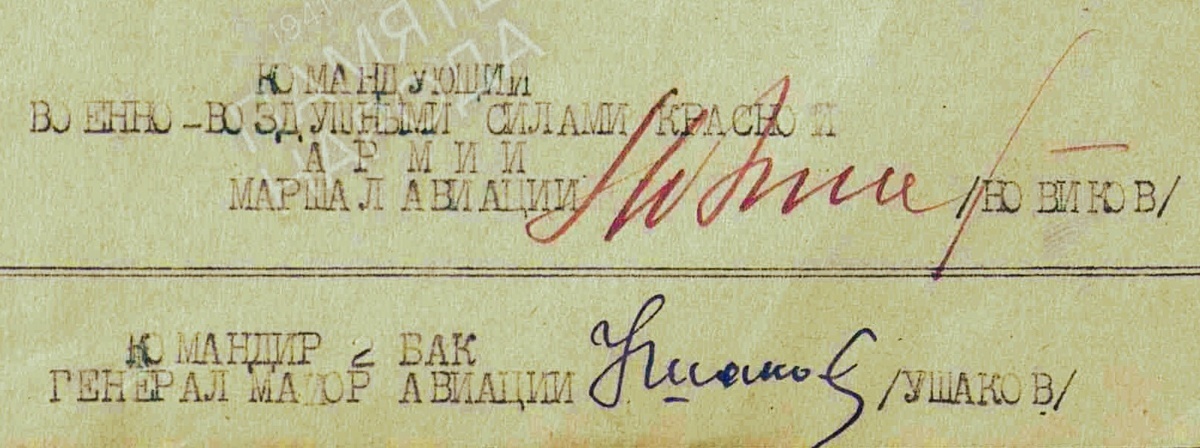 1941
ПАМЯТЬ
НАРОДА
КОМАНДУЮЩИЙ
ВОЕННО-ВОЗДУШНЫМИ СИЛАМИ КРАСНОЙ
АРМИИ
МАРШАЛ АВИАЦИИ /НОВИКОВ/
КОМАНДИР 2 БАК
ГЕНЕРАЛ МАЙОР АВИАЦИИ Ушаков /УШАКОВ/